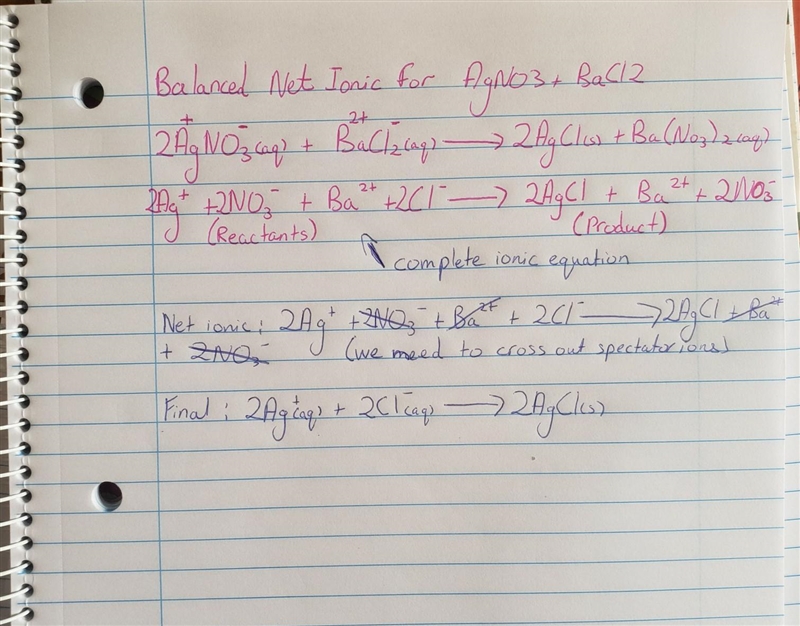 Balanced Net Ionic for AgNO3 + BaCl2
2Ag⁺NO₃⁻(aq) + Ba²⁺Cl₂⁻(aq) ⟶ 2AgCl(s) + Ba(NO₃)₂(aq)
2Ag⁺ + 2NO₃⁻ + Ba²⁺ + 2Cl⁻ ⟶ 2AgCl + Ba²⁺ + 2NO₃⁻
(Reactants) (Product)
complete ionic equation
Net ionic: 2Ag⁺ + 2NO₃⁻ + Ba²⁺ + 2Cl⁻ ⟶ 2AgCl + Ba²⁺
+ 2NO₃⁻ (we need to cross out spectator ions)
Final: 2Ag⁺(aq) + 2Cl⁻(aq) ⟶ 2AgCl(s)